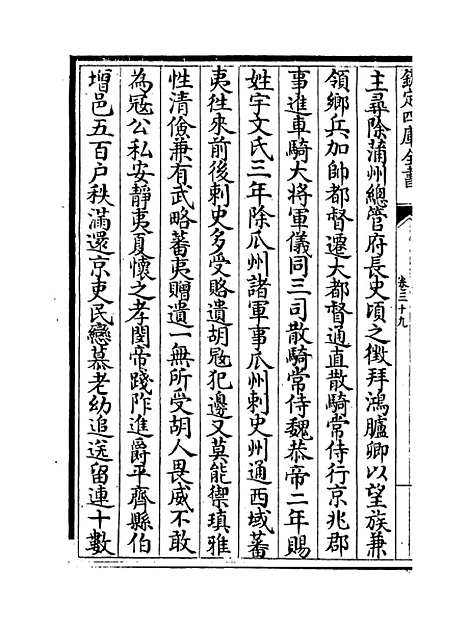 欽定四庫全書
卷三十九
主尋除蒲州總管府長史頃之徵拜鴻臚卿以望族兼
領鄉兵加帥都督遷大都督通直散騎常侍行京兆郡
事進車騎大將軍儀同三司散騎常侍魏恭帝二年賜
姓宇文氏三年除瓜州諸軍事瓜州刺史州通西域蕃
夷往來前後刺史多受賂遺胡寇犯邊又莫能禦瑱雅
性清儉兼有武略蕃夷贈遺一無所受胡人畏威不敢
為寇公私安靜夷夏懷之孝閔帝踐阼進爵平齊縣伯
增邑五百户秩滿還京吏民戀慕老幼追送留連十數